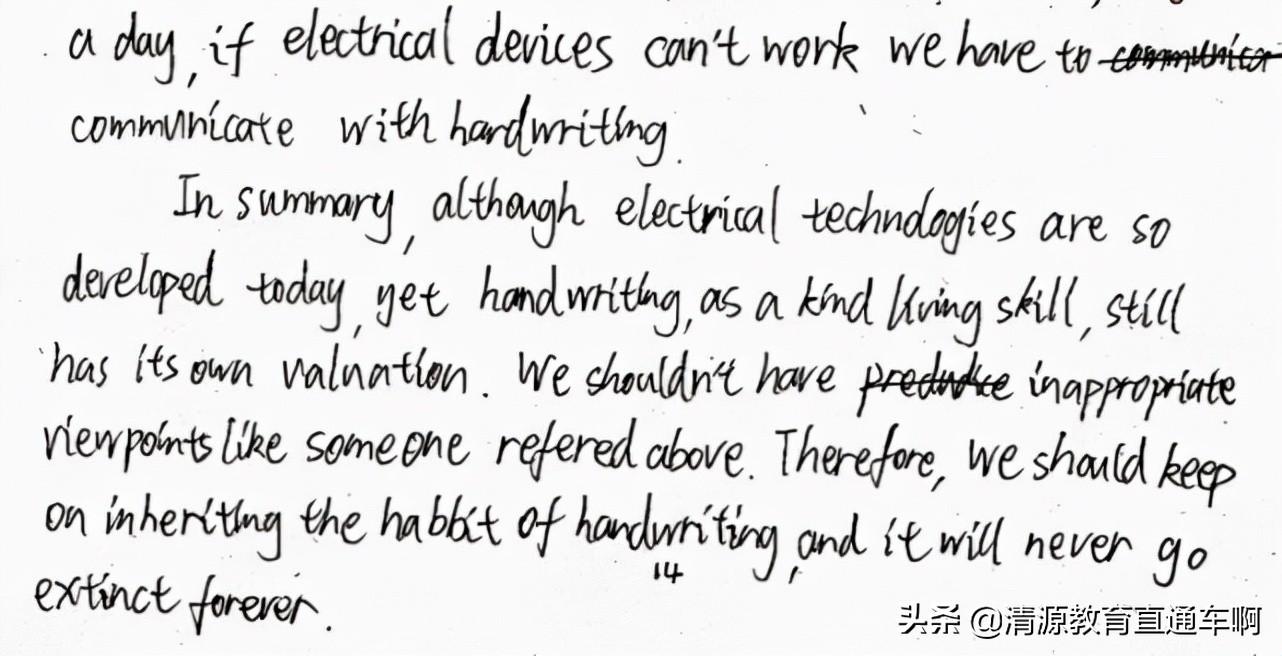 a day, if electrical devices can't work we have to
communicate with handwriting.
In summary, although electrical technologies are so
developed today, yet handwriting, as a kind living skill, still
has its own valuation. We shouldn't have inappropriate
viewpoints like someone refered above. Therefore, we should keep
on inheriting the habbit of handwriting, and it will never go
14
extinct forever.
头条 @清源教育直通车啊